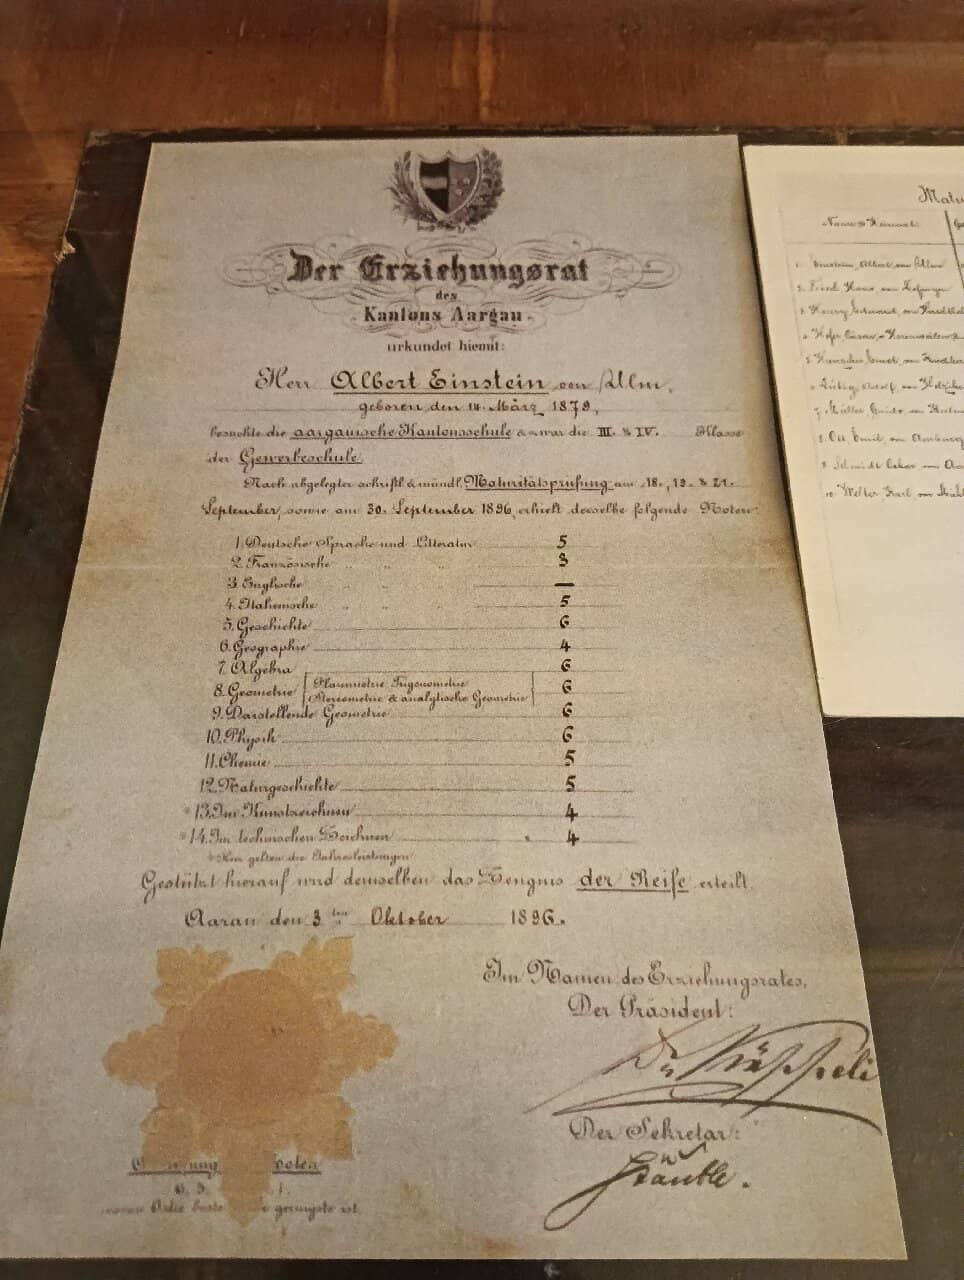 Der Erziehungsrat
des
Kantons Aargau.
urkundet hiemit:
Herr Albert Einstein von Ulm,
geboren den 14. März 1879,
besuchte die aargauische Kantonsschule & zwar die III. & IV. Klasse
der Gewerbeschule.
Nach abgelegter schriftl. & mündl. Maturitätsprüfung am 18., 19. & 21.
September, sowie am 30. September 1896, erhielt derselbe folgende Noten:
1. Deutsche Sprache und Litteratur 5
2. Französische " " " 3
3. Englische " " " —
4. Italienische " " " 5
5. Geschichte 6
6. Geographie 4
7. Algebra 6
8. Geometrie Planimetrie, Trigonometrie 6
Stereometrie & analytische Geometrie
9. Darstellende Geometrie 6
10. Physik 6
11. Chemie 5
12. Naturgeschichte 5
* 13. Im Kunstzeichnen 4
* 14. Im technischen Zeichnen 4
* Hier gelten die Jahresleistungen.
Gestützt hierauf wird demselben das Zeugnis der Reife erteilt.
Aarau den 3ten Oktober 1896.
Im Namen des Erziehungsrates,
Der Präsident:
Dr. Käppeli
Der Sekretär:
Stäuble.
beste geringste ist.
Name & Heimat:
1. Einstein, Albert, von Ulm